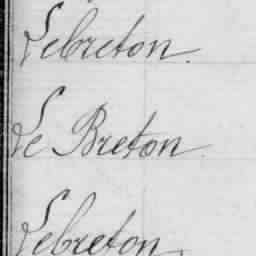 Lebreton.
Le Breton
Lebreton